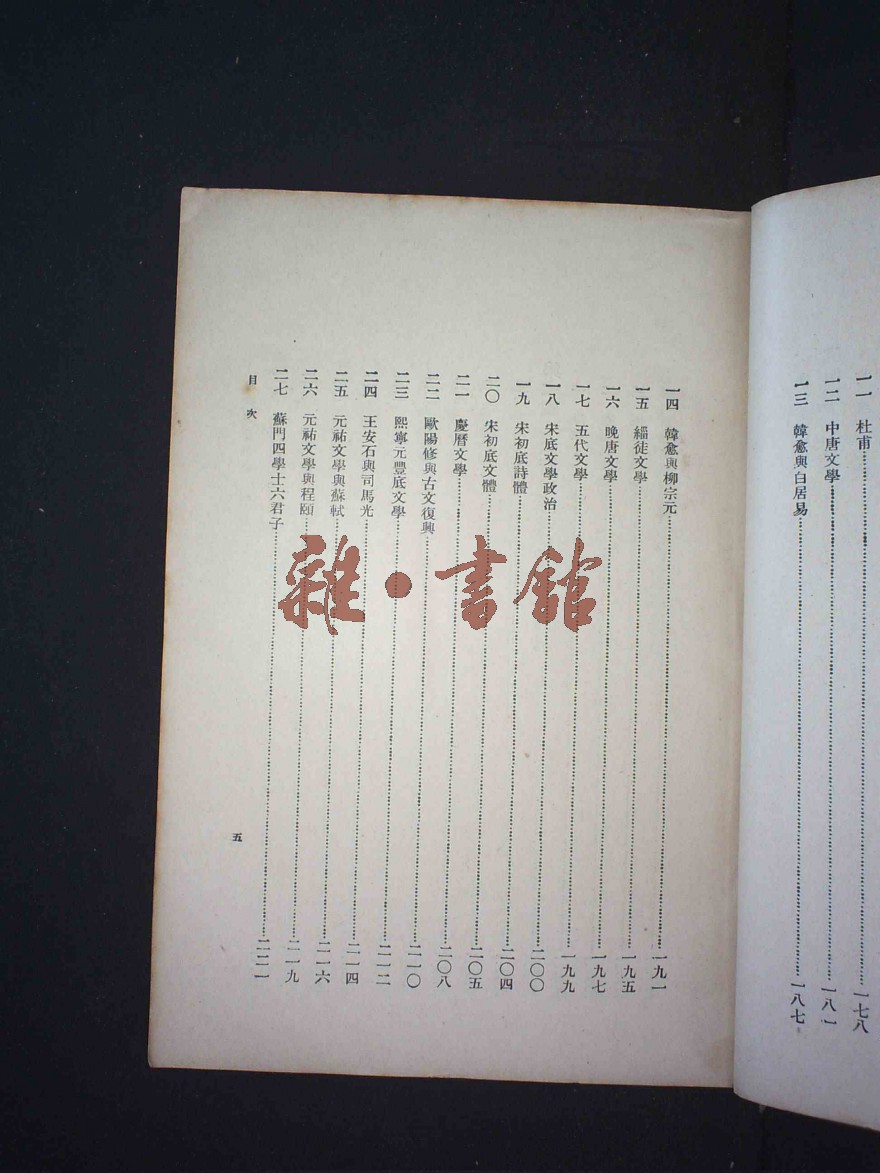 一一　杜甫……一七八
一二　中唐文學……一八一
一三　韓愈與白居易……一八七
一四　韓愈與柳宗元……一九一
一五　緇徒文學……一九五
一六　晚唐文學……一九七
一七　五代文學……一九九
一八　宋底文學政治……二〇〇
一九　宋初底詩體……二〇四
二〇　宋初底文體……二〇五
二一　慶曆文學……二〇八
二二　歐陽修與古文復興……二一〇
二三　熙寧元豐底文學……二一二
二四　王安石與司馬光……二一四
二五　元祐文學與蘇軾……二一六
二六　元祐文學與程頤……二一九
二七　蘇門四學士六君子……二二一
目次
五
雜·書館